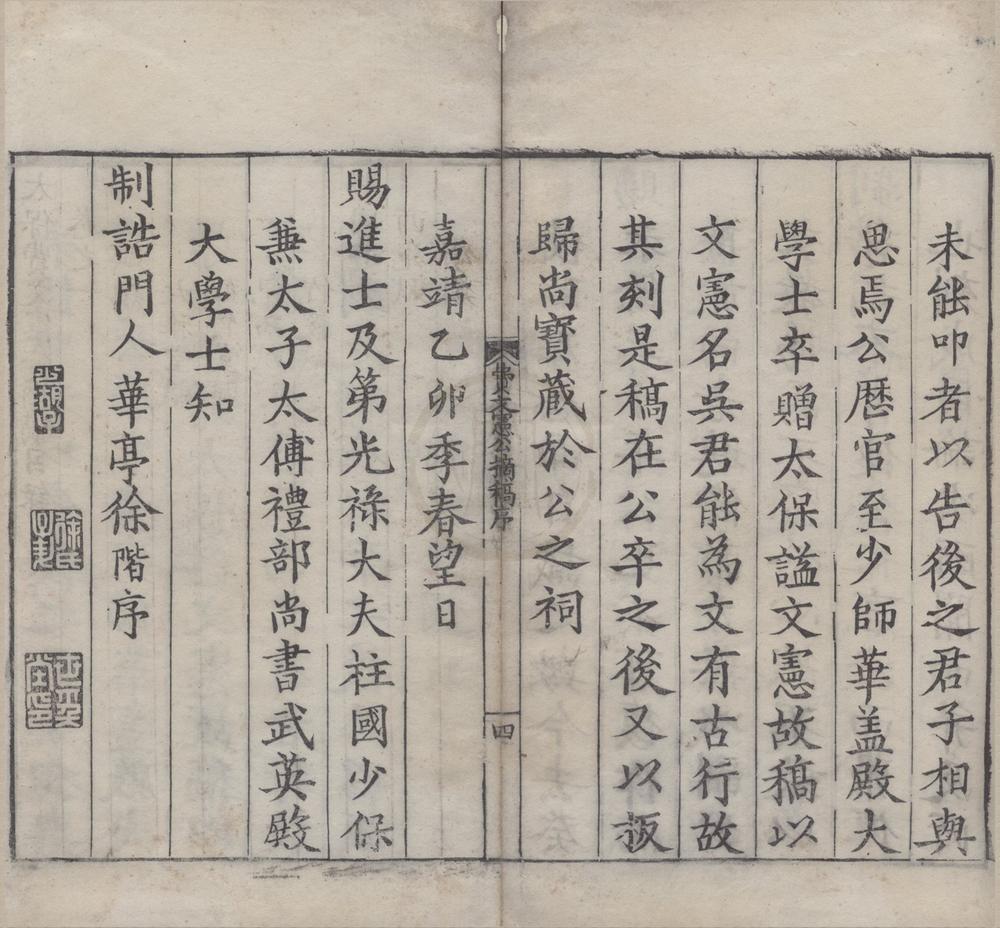 未能叩者以告後之君子相與
思焉公歷官至少師華盖殿大
學士卒贈太保謚文憲故稿以
文憲名吳君能為文有古行故
其刻是稿在公卒之後又以板
歸尚寶蔵於公之祠
費文憲公摘稿序
四
嘉靖乙卯季春望日
賜進士及第光祿大夫柱國少保
兼太子太傅禮部尚書武英殿
大學士知
制誥門人華亭徐階序
少湖
徐氏子升